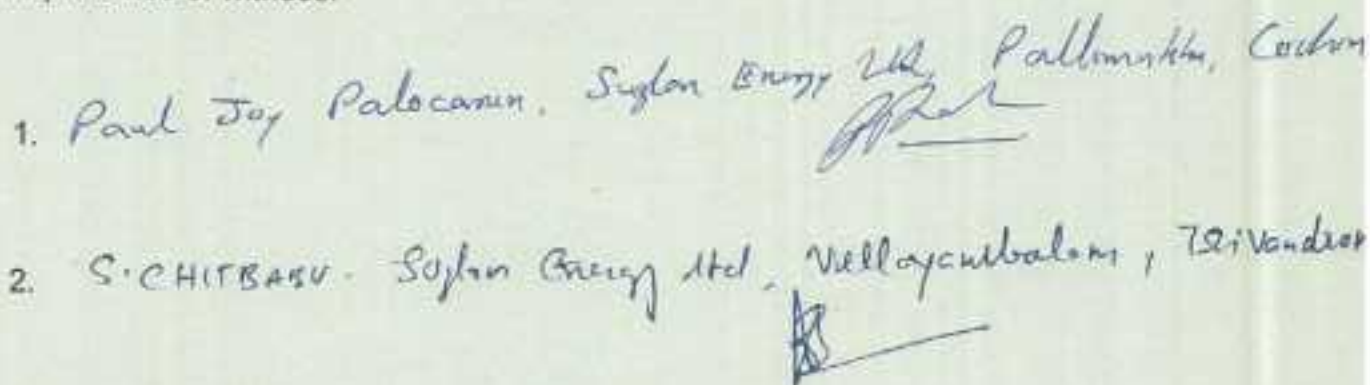 1. Paul Joy Palocaren. Suzlon Energy Ltd, Pallimukku, Cochin
2. S. CHITBABU. Suzlon Energy Ltd, Vellayambalam, Trivandrum